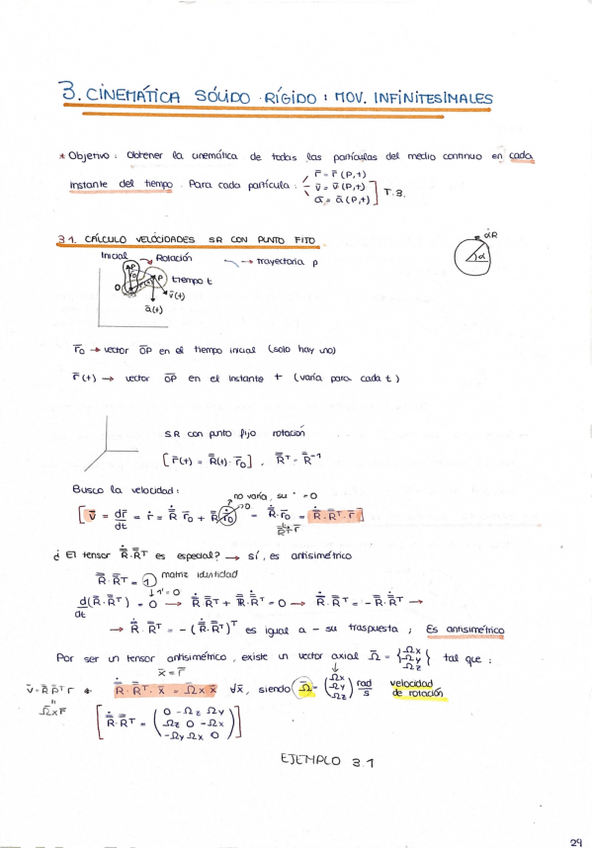 3. CINEMÁTICA SÓLIDO RÍGIDO : MOV. INFINITESIMALES
* Objetivo : Obtener la cinemática de todas las partículas del medio continuo en cada
instante del tiempo. Para cada partícula :
r̄ = r̄ (P,t)
v̄ = v̄ (P,t)
ā = ā (P,t)
T.3.
3.1. CÁLCULO VELOCIDADES SR CON PUNTO FIJO
αR
α
Inicial → Rotación → trayectoria p
P
O
P tiempo t
v̄(t)
ā(t)
r̄₀ → vector O̅P̅ en el tiempo inicial (solo hay uno)
r̄(t) → vector O̅P̅ en el instante t (varía para cada t)
SR con punto fijo rotación
[r̄(t) = R̿(t) · r̄₀] , R̿ᵀ = R̿⁻¹
Busco la velocidad :
no varía, su · = 0
[v̄ = dr̄/dt = ṙ = Ṙ r̄₀ + R ṙ₀ = Ṙ · r̄₀ = Ṙ · Rᵀ · r̄]
¿ El tensor Ṙ · Rᵀ es especial? → sí, es antisimétrico
R̿ · R̿ᵀ = 1 matriz identidad
↓ 1' = 0
d(R̿ · R̿ᵀ)/dt = 0 → Ṙ Rᵀ + R · Ṙᵀ = 0 → Ṙ · Rᵀ = - R · Ṙᵀ →
→ Ṙ · Rᵀ = - (Ṙ · Rᵀ)ᵀ es igual a - su traspuesta ; Es antisimétrico
Por ser un tensor antisimétrico, existe un vector axial Ω̄ = {Ωx Ωy Ωz} tal que :
x̄ = r̄
v̄ = Ṙ Rᵀ r * Ṙ · Rᵀ · x̄ = Ω̄ x x̄ ∀x̄, siendo Ω̄ = (Ωx Ωy Ωz) rad/s velocidad de rotación
Ω̄ x r̄
[Ṙ · Rᵀ = (0 -Ωz Ωy
Ωz 0 -Ωx
-Ωy Ωx 0)]
EJEMPLO 3.1
29